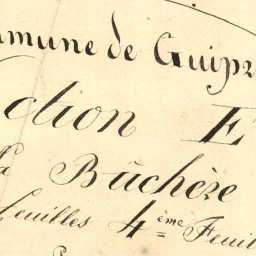 mmune de Guipr
ction E
la Bûchère
feuilles 4ème Feuil